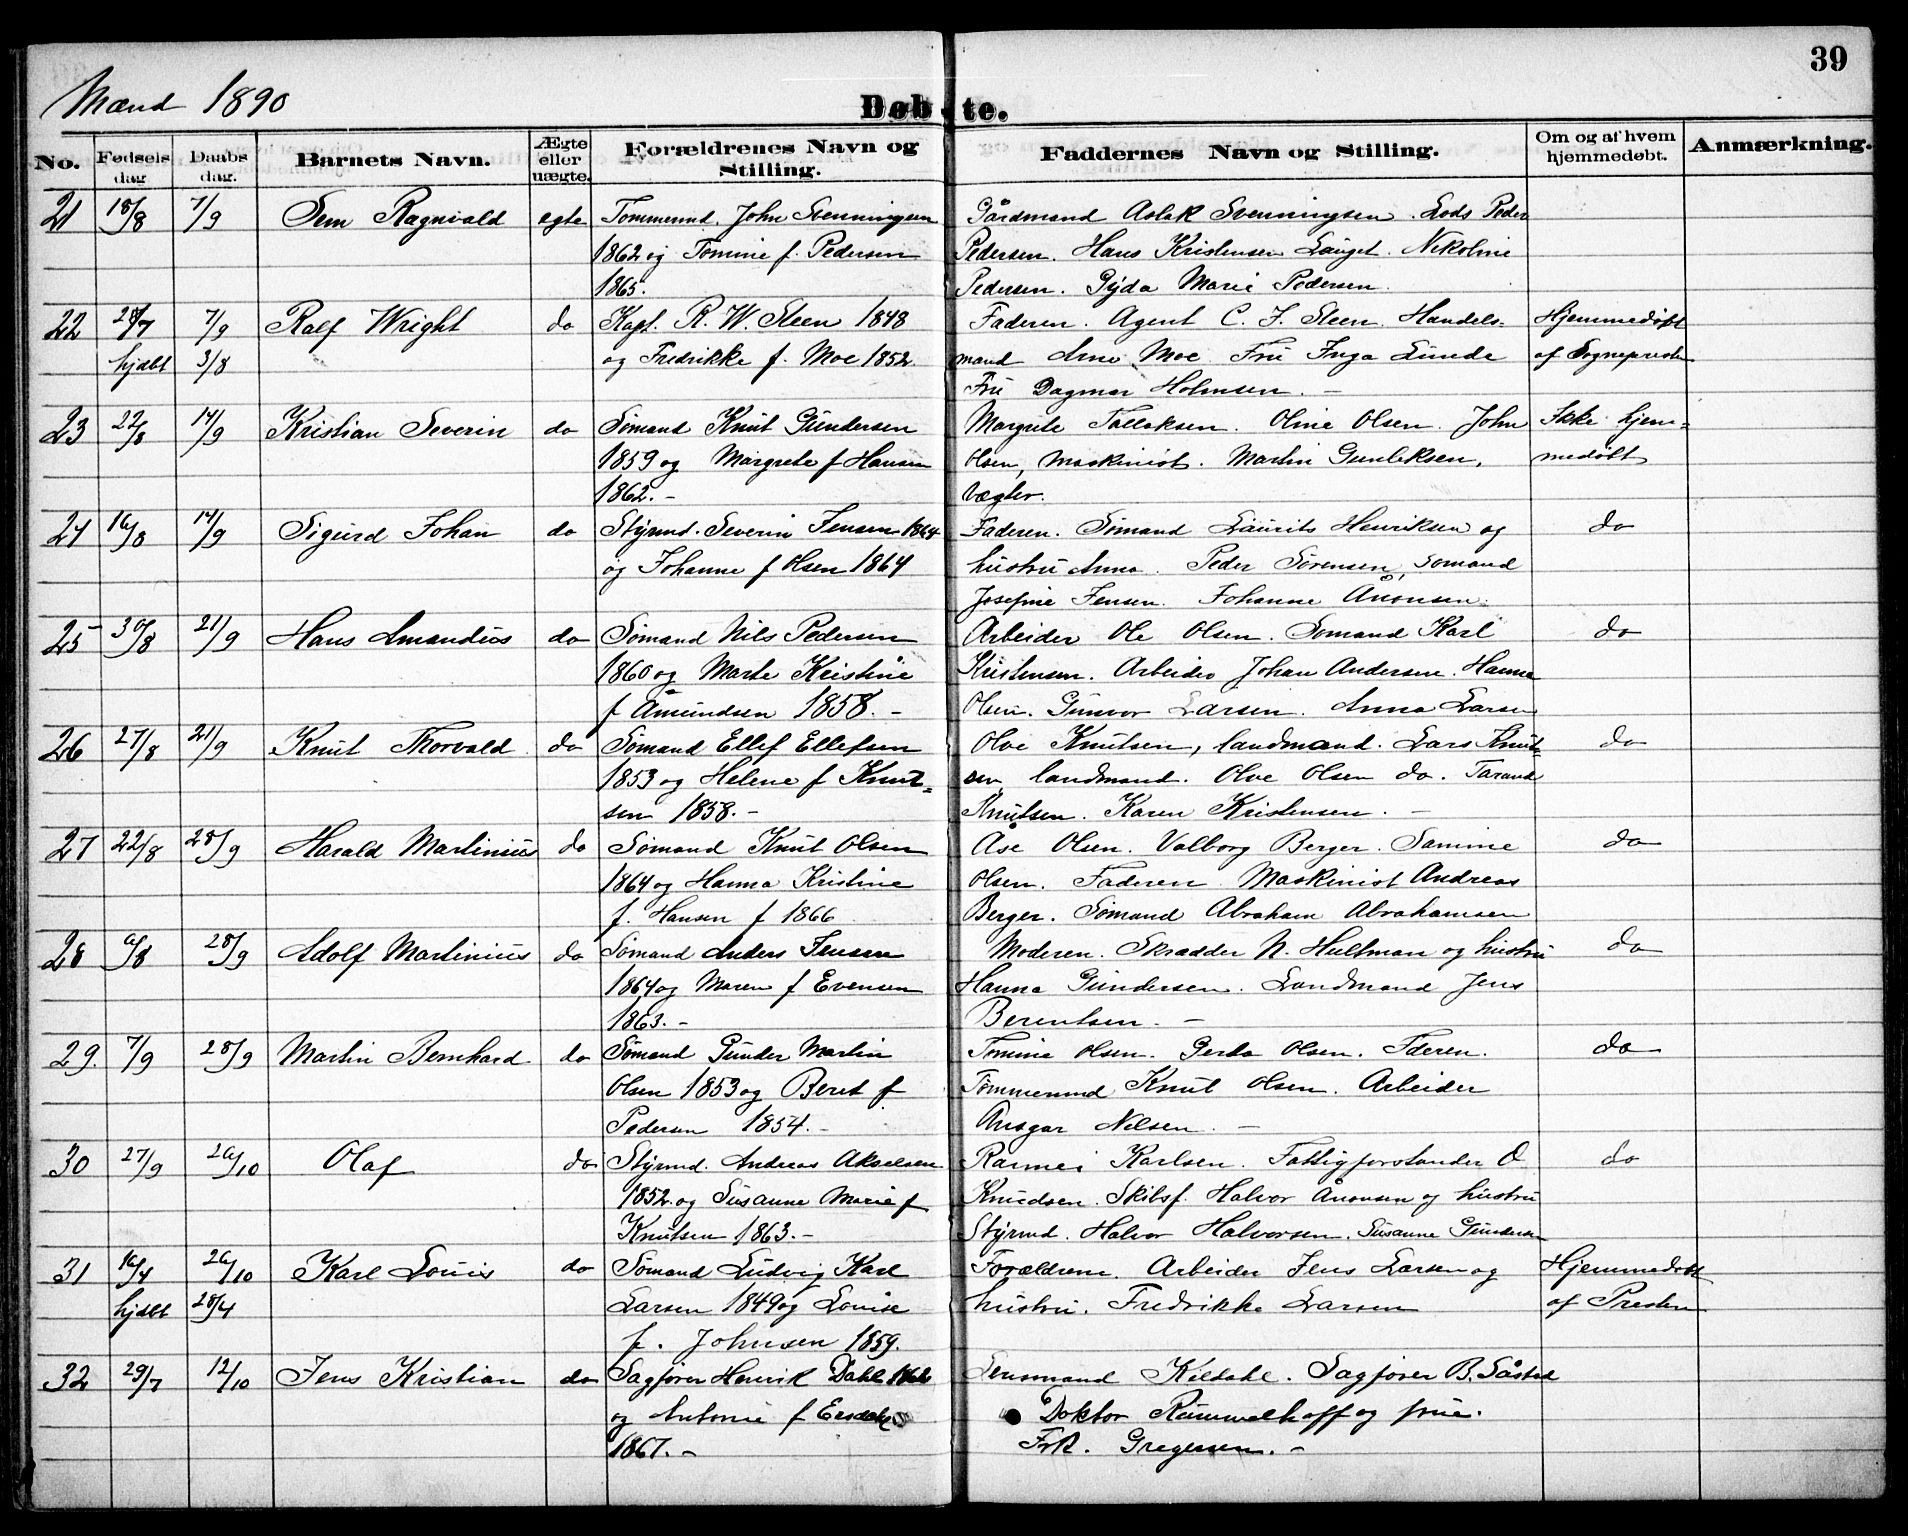 39
Mænd 1890
Døbte.
No. Fødselsdag Daabsdag. Barnets Navn. Ægte eller uægte. Forældrenes Navn og Stilling. Faddernes Navn og Stilling. Om og af hvem hjemmedøbt. Anmærkning.
21 18/8 7/9 Sem Ragnvald egte Tømmermd. John Svenningsen Gårdmand Aslak Svenningsen. Lods Peder
1862 og Tomine f. Pedersen Pedersen. Hans Kristensen Nikoline
1865. Pedersen. Gyda Marie Pedersen.
22 28/7 7/9 Ralf Wright do Kapt. R. W. Steen 1848 Faderen. Agent C. F. Steen. Handels- Hjemmedøbt
hjdbt 3/8 og Fredrikke f. Moe 1852. mand Arne Moe Fru Inga Lunde af Sognepresten
Fru Dagmar Holmsen. –
23 22/8 14/9 Kristian Severin do Sømand Knut Gundersen Margrete Tallaksen. Oline Olsen. John Ikke hjem-
1859 og Margrete f Hansen Olsen, Maskinist. Martin Gunleksen, medøbt
1862. – Vægter.
24 16/8 14/9 Sigurd Johan do Styrmd. Severin Jensen 1864 Faderen. Sømand Laurits Henriksen og do
og Johanne f Olsen 1864 hustru Anna. Peder Sørensen, sømand
Josefine Jensen. Johanne Ånonsen.
25 30/8 21/9 Hans Amandus do Sømand Nils Pedersen Arbeider Ole Olsen. Sømand Karl do
1860 og Marte Kristine Kristensen. Arbeider Johan Andersen. Hanna
f Åmundsen 1858. – Olsen. Gunvor Larsen. Anna Larsen
26 27/8 21/9 Knut Thorvald do Sømand Ellef Ellefsen Olve Knutsen, landmand. Lars Knut- do
1853 og Helene f Knut- sen landmand. Olve Olsen do. Tarand
sen 1858. – Knutsen. Karen Kristensen. –
27 22/8 28/9 Harald Martinius do Sømand Knut Olsen Åse Olsen. Valborg Berger. Samine do
1864 og Hanna Kristine Olsen. Faderen. Maskinist Andreas
f. Hansen f 1866 Berger. Sømand Abraham Abrahamsen
28 6/8 28/9 Adolf Martinius do Sømand Anders Jensen Moderen. Skrædder N. Hultman og hustru do
1864 og Maren f Evensen Hanna Gundersen. Landmand Jens
1863. – Berentsen. –
29. 7/9 28/9 Martin Bernhard do Sømand Gunder Martin Tomine Olsen. Gerda Olsen. Fderen. do
Olsen 1853 og Beret f Tømmermd Knut Olsen. Arbeider
Pedersen 1854. – Ansgar Nilsen. –
30 27/9 26/10 Olaf do Styrmd. Andreas Akselsen Karlsen. Fattigforstander O do
1852. og Susanne Marie f Knudsen. Skibsf. Halvor Ånonsen og hustru
Knutsen 1863. – Styrmd. Halvor Halvorsen. Susanne Gundersen
31 16/4 26/10 Karl Louis do Sømand Ludvig Karl Forældrene. Arbeider Jens Larsen og Hjemmedøbt
hjdbt 28/4 Larsen 1849 og Louise hustru. Fredrikke Larsen af Presten
f. Johnsen 1859.
32 29/7 12/10 Jens Kristian do Sagfører Henrik Dahl Lensmand Kildahl. Sagfører B.
og Antonie f Doktor Rummelhoff og frue.
1867. – Frk. Gregersen. –